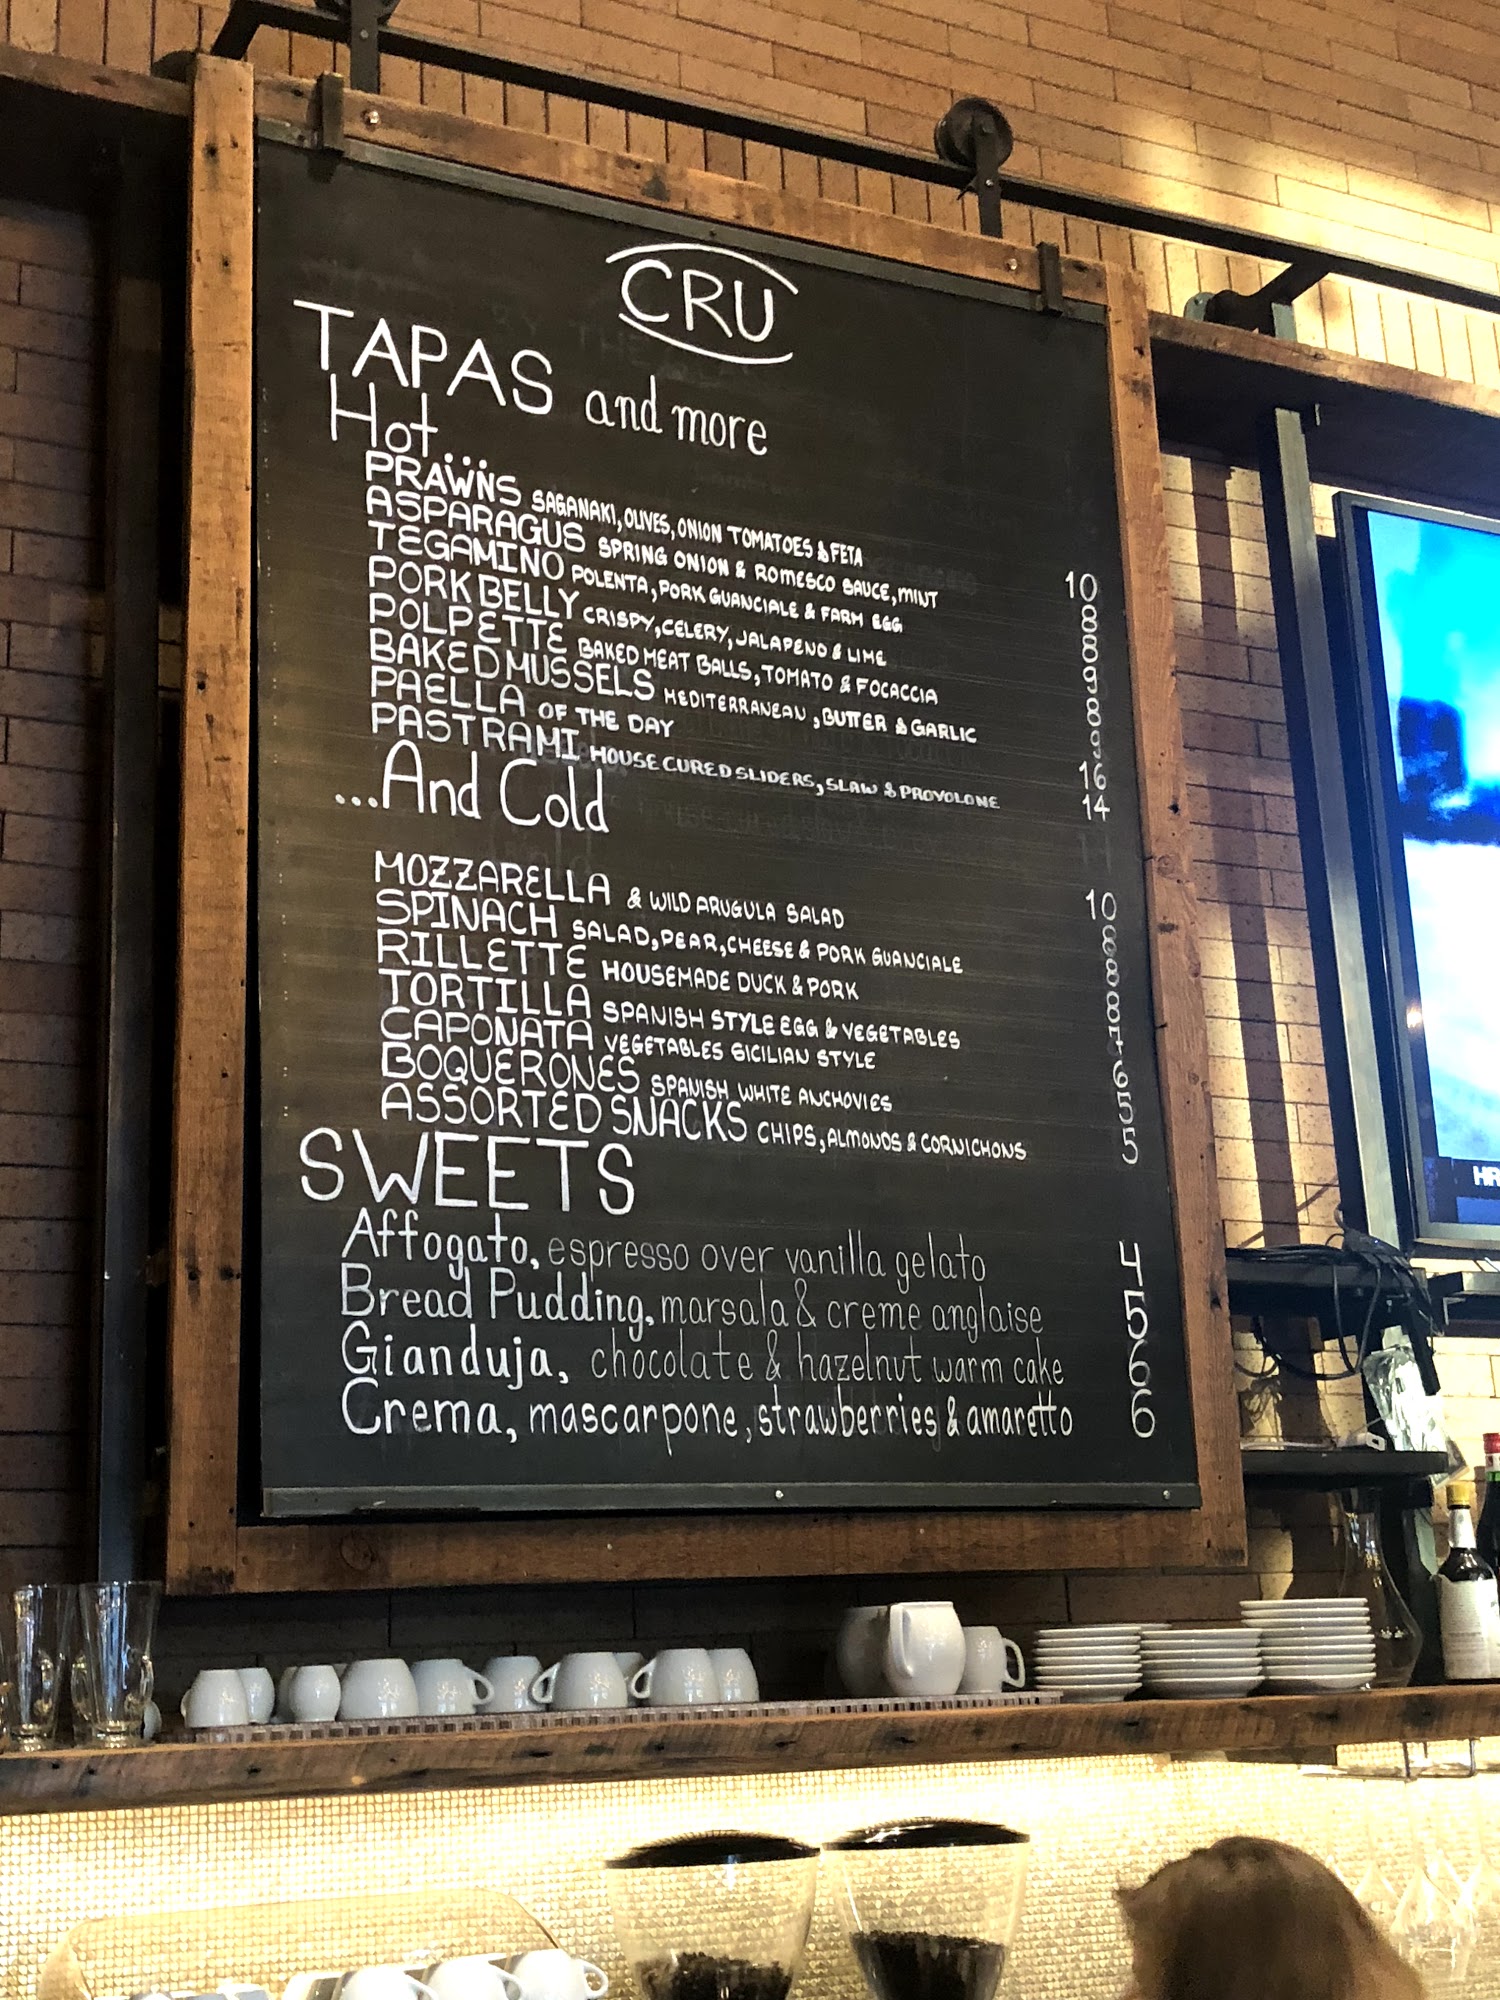 CRU
TAPAS and more
Hot...
PRAWNS SAGANAKI, OLIVES, ONION TOMATOES & FETA 10
ASPARAGUS SPRING ONION & ROMESCO SAUCE, MINT 8
TEGAMINO POLENTA, PORK GUANCIALE & FARM EGG 8
PORK BELLY CRISPY, CELERY, JALAPENO & LIME 9
POLPETTE BAKED MEAT BALLS, TOMATO & FOCACCIA 8
BAKED MUSSELS MEDITERRANEAN, BUTTER & GARLIC 9
PAELLA OF THE DAY 16
PASTRAMI HOUSE CURED SLIDERS, SLAW & PROVOLONE 14
...And Cold
MOZZARELLA & WILD ARUGULA SALAD 10
SPINACH SALAD, PEAR, CHEESE & PORK GUANCIALE 8
RILLETTE HOUSEMADE DUCK & PORK 8
TORTILLA SPANISH STYLE EGG & VEGETABLES 8
CAPONATA VEGETABLES SICILIAN STYLE 7
BOQUERONES SPANISH WHITE ANCHOVIES 6
ASSORTED SNACKS CHIPS, ALMONDS & CORNICHONS 5
5
SWEETS
Affogato, espresso over vanilla gelato 4
Bread Pudding, marsala & creme anglaise 5
Gianduja, chocolate & hazelnut warm cake 6
Crema, mascarpone, strawberries & amaretto 6